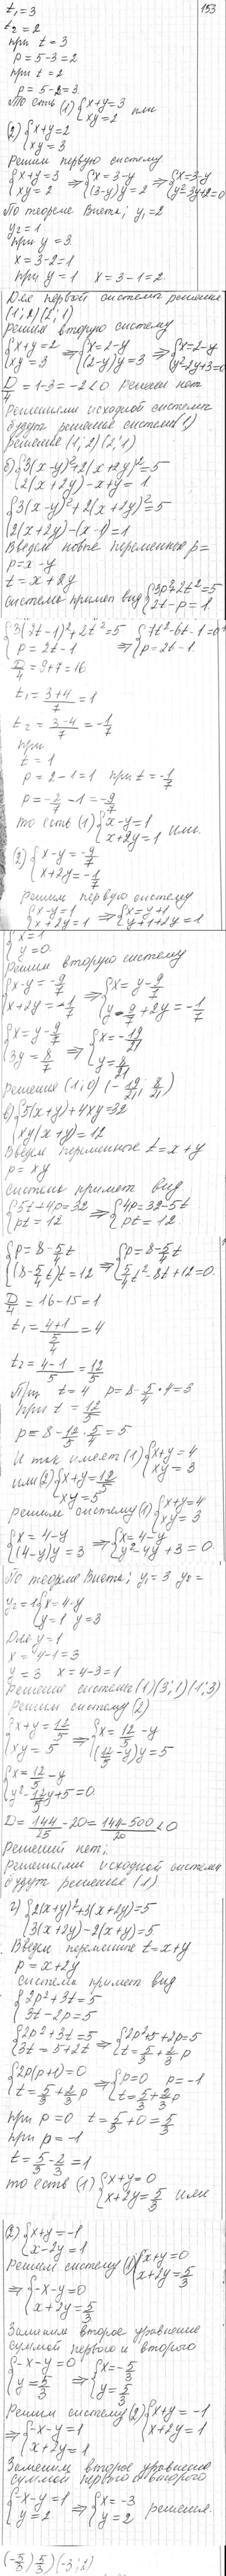 153
t₁ = 3
t₂ = 2
при t = 3
p = 5-3 = 2
при t = 2
p = 5-2 = 3.
То есть (1) {x+y=3 или
xy=2
(2) {x+y=2
xy=3
Решим первую систему
{x+y=3 ⇒ {x=3-y ⇒ {x=3-y
xy=2 (3-y)y=2 y²-3y+2=0
По теореме Виета; y₁=2
y₂=1
при y = 3.
x=3-2=1
при y=1 x=3-1=2.
Для первой системы решение
(1; 2) (2; 1)
Решим вторую систему
{x+y=2 ⇒ {x=2-y ⇒ {x=2-y
xy=3 (2-y)y=3 y²-2y+3=0
D/4 = 1-3=-2<0 решений нет
Решениями исходной системы
будут решения системы (1)
решение (1; 2) (2; 1)
б) {3(x-y)²+2(x+2y)²=5
2(x+2y)-x+y=1
{3(x-y)²+2(x+2y)²=5
2(x+2y)-(x-1)=1
Введем новые переменные p=
p=x-y
t=x+2y
система примет вид {3p²+2t²=5
2t-p=1.
{3(2t-1)²+2t²=5 ⇒ {7t²-6t-1=0
p=2t-1 p=2t-1.
D/4 = 9+7=16
t₁ = (3+4)/7 = 1
t₂ = (3-4)/7 = -1/7
при
t = 1
p=2-1=1 при t=-1/7
p=-2/7-1=-9/7
то есть (1) {x-y=1 или
x+2y=1
(2) {x-y=-9/7
x+2y=-1/7
Решим первую систему
{x-y=1 ⇒ {x=y+1
x+2y=1 y+1+2y=1
{x=1
y=0.
Решим вторую систему
{x-y=-9/7 ⇒ {x=y-9/7
x+2y=-1/7 y-9/7+2y=-1/7
{x=y-9/7 ⇒ {x=-19/21
3y=8/7 y=8/21
Решения (1; 0) (-19/21; 8/21)
в) {5(x+y)+4xy=32
xy(x+y)=12
Введем переменные t=x+y
p=xy
Система примет вид
{5t+4p=32 ⇒ {4p=32-5t
pt=12 pt=12
{p=8-5/4t ⇒ {p=8-5/4t
(8-5/4t)t=12 5/4t²-8t+12=0.
D/4 = 16-15=1
t₁ = (4+1)/(5/4) = 4
t₂ = (4-1)/5 = 12/5
При t=4 p=8-5/4·4=3
при t=12/5
p=8-12/5·5/4=5
И так имеет (1) {x+y=4
xy=3
или (2) {x+y=12/5
xy=5
решим систему (1) {x+y=4
xy=3
{x=4-y ⇒ {x=4-y
(4-y)y=3 y²-4y+3=0.
По теореме Виета; y₁=3 y₂=
y₂=1 {x=4-y
y=1 y=3
Для y=1
x=4-1=3
y=3 x=4-3=1
Решение системы (1) (3; 1) (1; 3)
Решим систему (2)
{x+y=12/5 ⇒ {x=12/5-y
xy=5 (12/5-y)y=5
{x=12/5-y
y²-12/5y+5=0.
D=144/25-20=(144-500)/20<0
Решений нет;
Решениями исходной системы
будут решения (1)
г) {2(x+y)²+3(x+2y)=5
3(x+2y)-2(x+y)=5
Введем переменные t=x+y
p=x+2y
система примет вид
{2p²+3t=5
3t-2p=5
{2p²+3t=5 ⇒ {2p²+5+2p=5
3t=5+2t t=5/3+2/3p
{2p(p+1)=0 ⇒ {p=0 p=-1
t=5/3+2/3p t=5/3+2/3p
при p=0 t=5/3+0=5/3
при p=-1
t=5/3-2/3=1
то есть (1) {x+y=0
x+2y=5/3 или
(2) {x+y=-1
x-2y=1
Решим систему (1) {x+y=0
x+2y=5/3
⇒ {-x-y=0
x+2y=5/3
Заменим второе уравнение
суммой первого и второго
{-x-y=0 ⇒ {x=-5/3
y=5/3 y=5/3
Решим систему (2) {x+y=-1
x+2y=1
⇒ {-x-y=1
x+2y=1
Заменим второе уравнение
суммой первого и второго
{-x-y=1 ⇒ {x=-3
y=2 y=2 решения:
(-5/3; 5/3) (-3; 2)